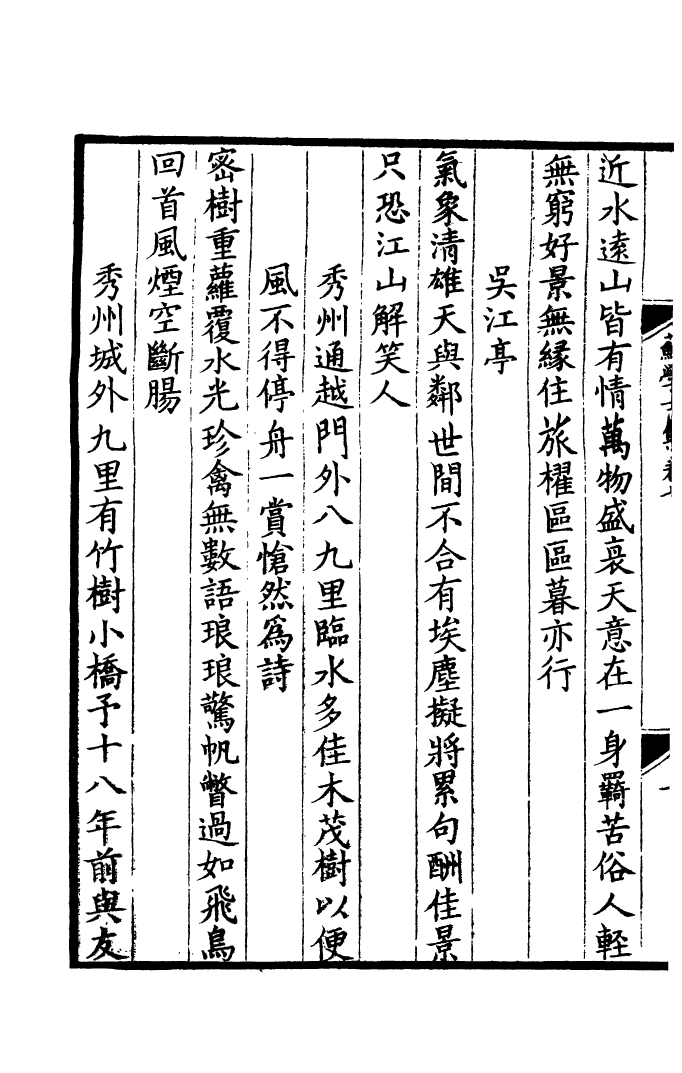 近水逺山皆有情萬物盛衰天意在一身羇苦俗人輕
無窮好景無縁住旅櫂區區暮亦行
吳江亭
氣象清雄天與鄰世間不合有埃塵擬將累句酬佳景
只恐江山解笑人
秀州通越門外八九里臨水多佳木茂樹以便
風不得停舟一賞愴然爲詩
密樹重蘿覆水光珍禽無數語琅琅驚帆瞥過如飛鳥
回首風煙空斷腸
秀州城外九里有竹樹小橋予十八年前與友